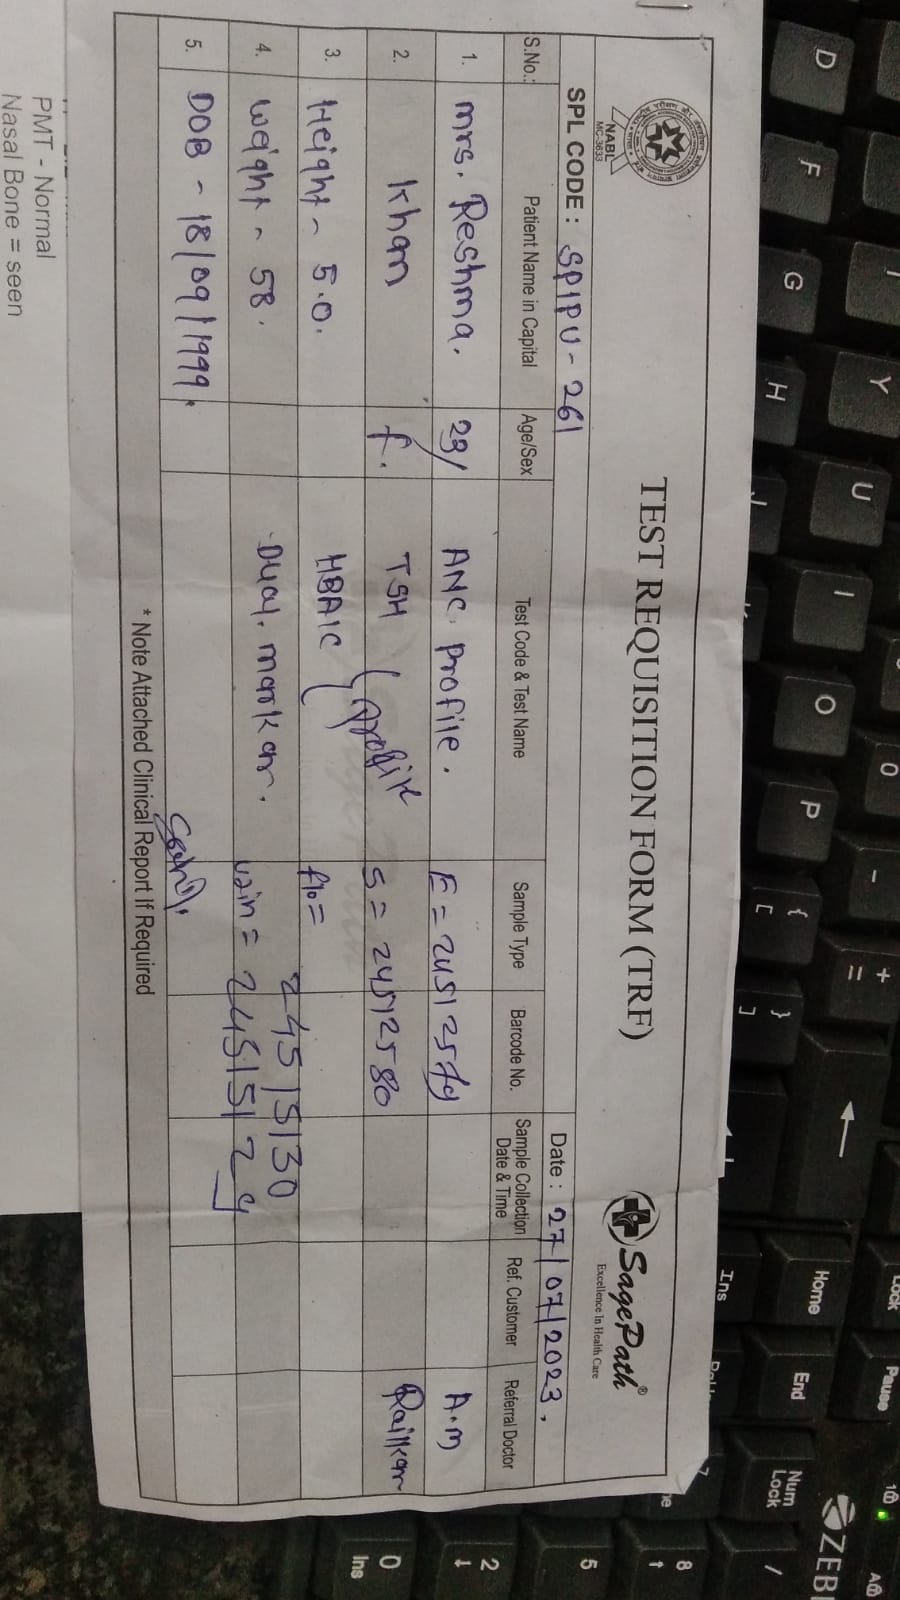 TEST REQUISITION FORM (TRF)
NABL
MC-3633
SagePath®
Excellence In Health Care
SPL CODE : SPIPU - 261
Date : 27/07/2023.
S.No.: Patient Name in Capital Age/Sex Test Code & Test Name Sample Type Barcode No. Sample Collection Date & Time Ref. Customer Referral Doctor
1. mrs. Reshma. 23/ ANC. Profile. E = 24512579 A.M
2. khan f. TSH (profile S = 24512580 Railkar
3. Height - 5.0. HBA1C f10 = 24515130
4. weight - 58. Dual. marker. urin = 24515129
5. DOB - 18/09/1999.
* Note Attached Clinical Report If Required
PMT - Normal
Nasal Bone = seen
D F G H J Y U I O P
{ [
} ]
+ =
-
0
Ins
Home
End
Lock
Pause
Num Lock
/
8 ↑
5
2 ↓
0 Ins
7
1
A
ZEB